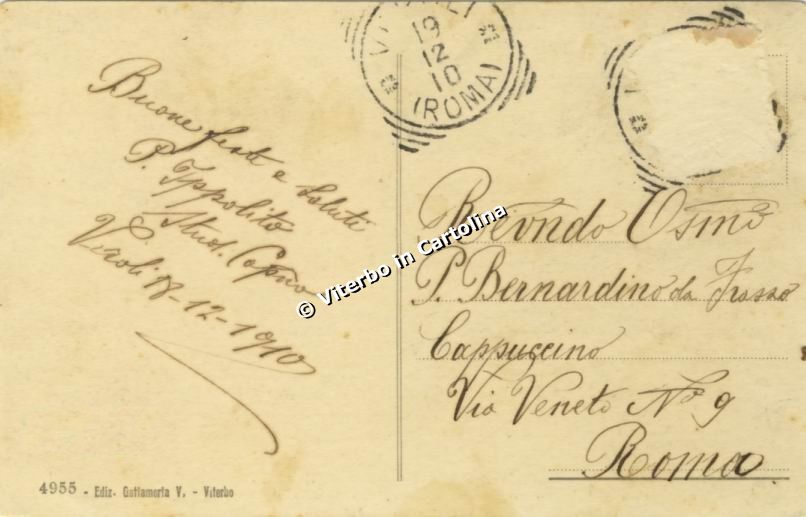 VEROLI
19
12
10
(ROMA)
Buone feste e saluti
P. Ippolito
Stud. Capno
Veroli 18-12-1910
Revndo Osmo
P. Bernardino da Frasso
Cappuccino
Via Veneto No 9
Roma
© Viterbo in Cartolina
4955 - Ediz. Gattamorta V. - Viterbo